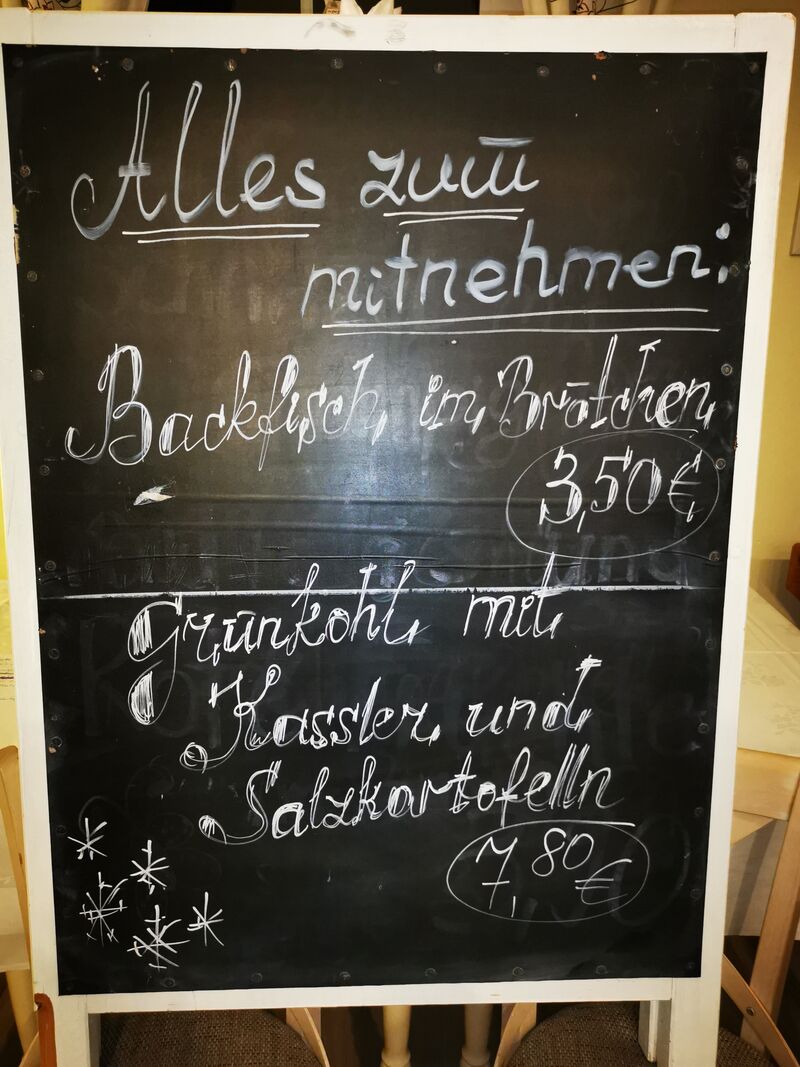 Alles zum
mitnehmen:
Backfisch im Brötchen
3,50€
Grünkohl mit
Kassler und
Salzkartofelln
7,80 €